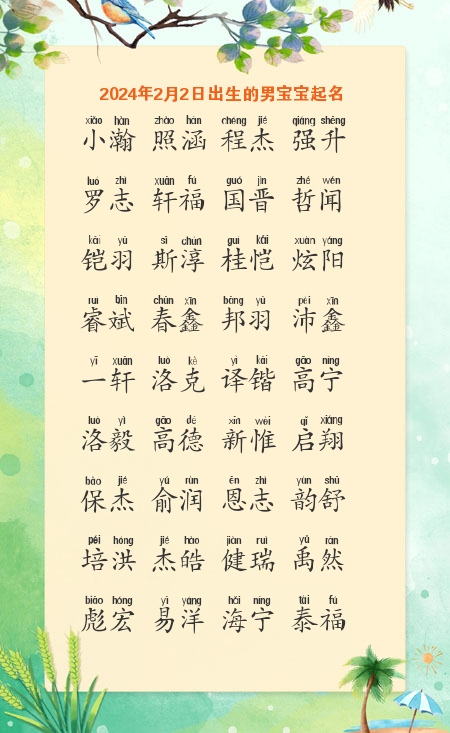 2024年2月2日出生的男宝宝起名
xiǎo hàn zhào hán chéng jié qiáng shēng
小瀚 照涵 程杰 强升
luó zhì xuān fú guó jìn zhé wén
罗志 轩福 国晋 哲闻
kǎi yǔ sī chún guì kǎi xuàn yáng
铠羽 斯淳 桂恺 炫阳
ruì bīn chūn xīn bāng yǔ pèi xīn
睿斌 春鑫 邦羽 沛鑫
yī xuān luò kè yì kǎi gāo níng
一轩 洛克 译锴 高宁
luò yì gāo dé xīn wéi qǐ xiáng
洛毅 高德 新惟 启翔
bǎo jié yú rùn ēn zhì yùn shū
保杰 俞润 恩志 韵舒
péi hóng jié hào jiàn ruì yǔ rán
培洪 杰皓 健瑞 禹然
biāo hóng yì yáng hǎi níng tài fú
彪宏 易洋 海宁 泰福